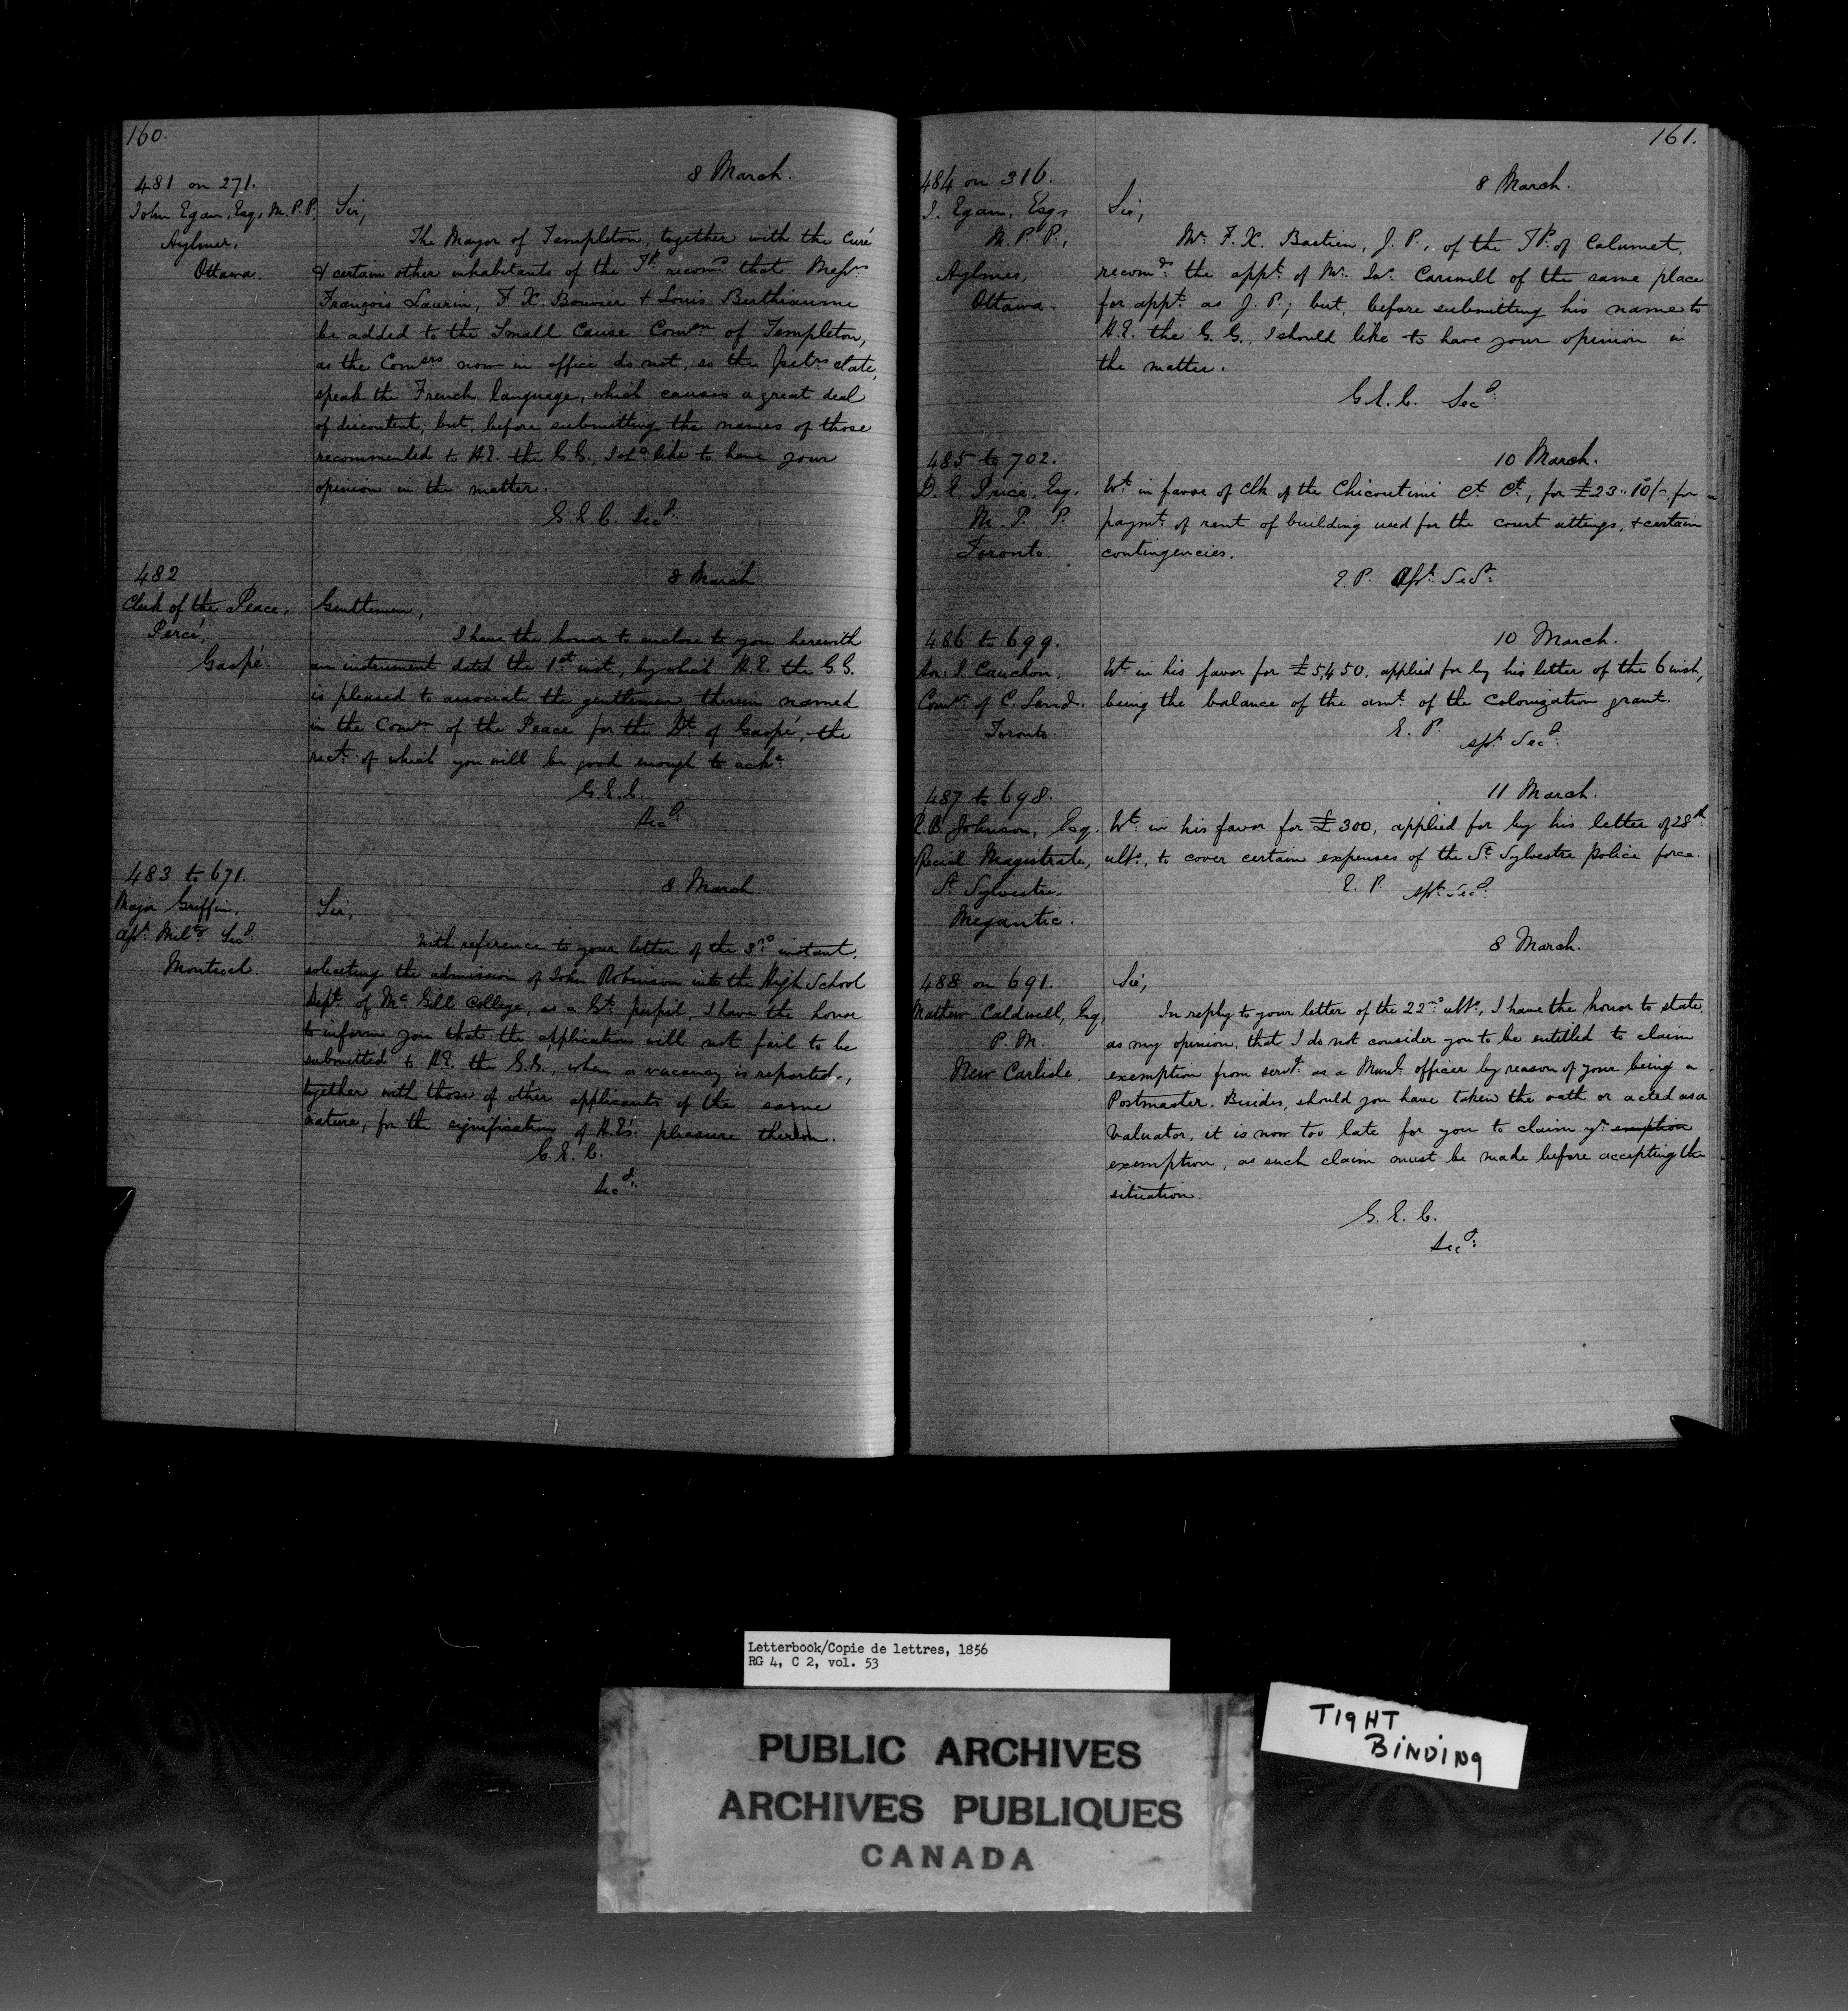 160.
8 March.
481 on 271.
John Egan, Esq, M.P.P.
Aylmer,
Ottawa.
Sir,
The Mayor of Templeton, together with the Curé
& certain other inhabitants of the Tp. recomd. that Messrs
François Laurin, F. X. Bouvier & Louis Berthiaume
be added to the Small Cause Comon of Templeton,
as the Comers now in office do not, so the petrs state,
speak the French language, which causes a great deal
of discontent; but, before submitting the names of those
recommended to H.E. the G.G., I shd. like to have your
opinion in the matter.
G.E.C. Secy.
482
Clerk of the Peace,
Percé,
Gaspé.
8 March
Gentlemen,
I have the honor to enclose to you herewith
an instrument dated the 1st inst., by which H.E. the G.G.
is pleased to associate the gentlemen therein named
in the Comon of the Peace for the Dt. of Gaspé, the
rect. of which you will be good enough to acke.
G.E.C.
Secy.
483 to 671.
Major Griffin,
Asst. Milty. Secy.
Montreal.
8 March
Sir,
With reference to your letter of the 3rd instant,
soliciting the admission of John Robinson into the High School
Dept. of McGill College, as a Gt. pupil, I have the honor
to inform you that the application will not fail to be
submitted to H.E. the G.G., when a vacancy is reported,
together with those of other applicants of the same
nature, for the signification of H.E's. pleasure thereon.
G.E.C.
Secy.
161.
484 on 316.
J. Egan, Esqr
M.P.P.,
Aylmer,
Ottawa.
8 March.
Sir,
Mr. F. X. Bastien, J.P., of the Tp. of Calumet,
recomds. the appt. of Mr. Jas. Carswell of the same place
for appt. as J.P.; but, before submitting his name to
H.E. the G.G., I should like to have your opinion in
the matter.
G.E.C. Secy.
485 to 702.
D. E. Price, Esq.
M. P. P.
Toronto.
10 March.
Wt. in favor of Clk of the Chicoutimi Ct. Ct., for £23..10/-, for
paymt. of rent of building used for the court sittings, & certain
contingencies.
E.P. Asst. Secy.
486 to 699.
Hon: J. Cauchon,
Comr. of C. Lands.
Toronto.
10 March.
Wt in his favor for £5,450, applied for by his letter of the 6 inst,
being the balance of the amt. of the Colonization grant.
E. P.
Asst. Secy.
487 to 698.
R. B. Johnson, Esq.
Special Magistrate,
St Sylvestre,
Megantic.
11 March.
Wt. in his favor for £300, applied for by his letter of 28th
ulto., to cover certain expenses of the St. Sylvestre police force.
E. P. Asst. Secy.
8 March.
488 on 691.
Mathew Caldwell, Esq,
P. M.
New Carlisle.
Sir,
In reply to your letter of the 22nd ulto., I have the honor to state,
as my opinion, that I do not consider you to be entitled to claim
exemption from servg. as a Munl. officer by reason of your being a
Postmaster. Besides, should you have taken the oath or acted as a
Valuator, it is now too late for you to claim yr. emption
exemption, as such claim must be made before accepting the
situation.
G. E. C.
Secy.
Letterbook/Copie de lettres, 1856
RG 4, C 2, vol. 53
PUBLIC ARCHIVES
ARCHIVES PUBLIQUES
CANADA
TIGHT
BINDING